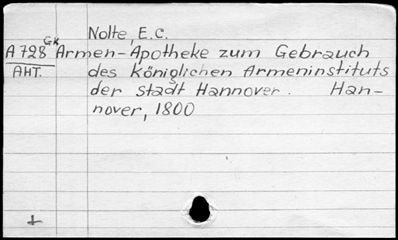 Nolte, E.C.
GK
A 728 Armen-Apotheke zum Gebrauch
AHT. des Königlichen Armeninstituts
der Stadt Hannover. Han-
nover, 1800